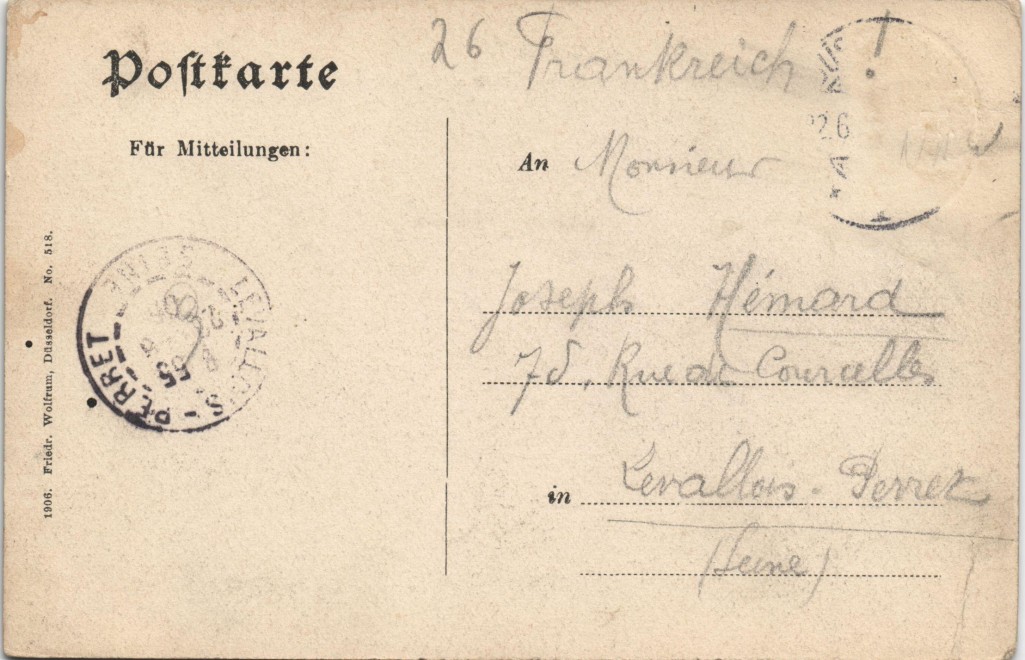 Postkarte
Für Mitteilungen:
1906. Friedr. Wolfrum, Düsseldorf. No. 518.
LEVALLOIS-PERRET
SEINE
26 Frankreich !
22.6
An Monsieur
Joseph Hémard
75, Rue de Courcelles
in Levallois-Perret
(Seine)